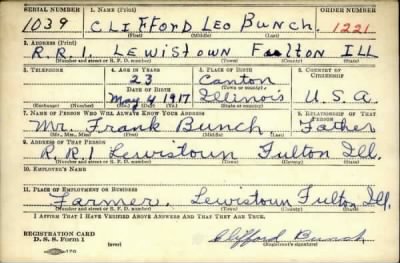 SERIAL NUMBER 1. NAME (Print) ORDER NUMBER
1039 CLIFFORD LEO BUNCH. 1221
(First) (Middle) (Last)
2. ADDRESS (Print)
R.R.1. LEWISTOWN FULTON ILL
(Number and street or R. F. D. number) (Town) (County) (State)
3. TELEPHONE 4. AGE IN YEARS 5. PLACE OF BIRTH 6. COUNTRY OF CITIZENSHIP
23 Canton
DATE OF BIRTH (Town or county)
May 6 1917 Illinois U.S.A.
(Exchange) (Number) (Mo.) (Day) (Yr.) (State or country)
7. NAME OF PERSON WHO WILL ALWAYS KNOW YOUR ADDRESS 8. RELATIONSHIP OF THAT PERSON
Mr. Frank Bunch Father
(Mr., Mrs., Miss) (First) (Middle) (Last)
9. ADDRESS OF THAT PERSON
R.R.1 Lewistown Fulton Ill.
(Number and street or R. F. D. number) (Town) (County) (State)
10. EMPLOYER'S NAME
11. PLACE OF EMPLOYMENT OR BUSINESS
Farmer. Lewistown Fulton Ill.
(Number and street or R. F. D. number) (Town) (County) (State)
I AFFIRM THAT I HAVE VERIFIED ABOVE ANSWERS AND THAT THEY ARE TRUE.
REGISTRATION CARD
D. S. S. Form 1 (over) Clifford Bunch
(Registrant's signature)